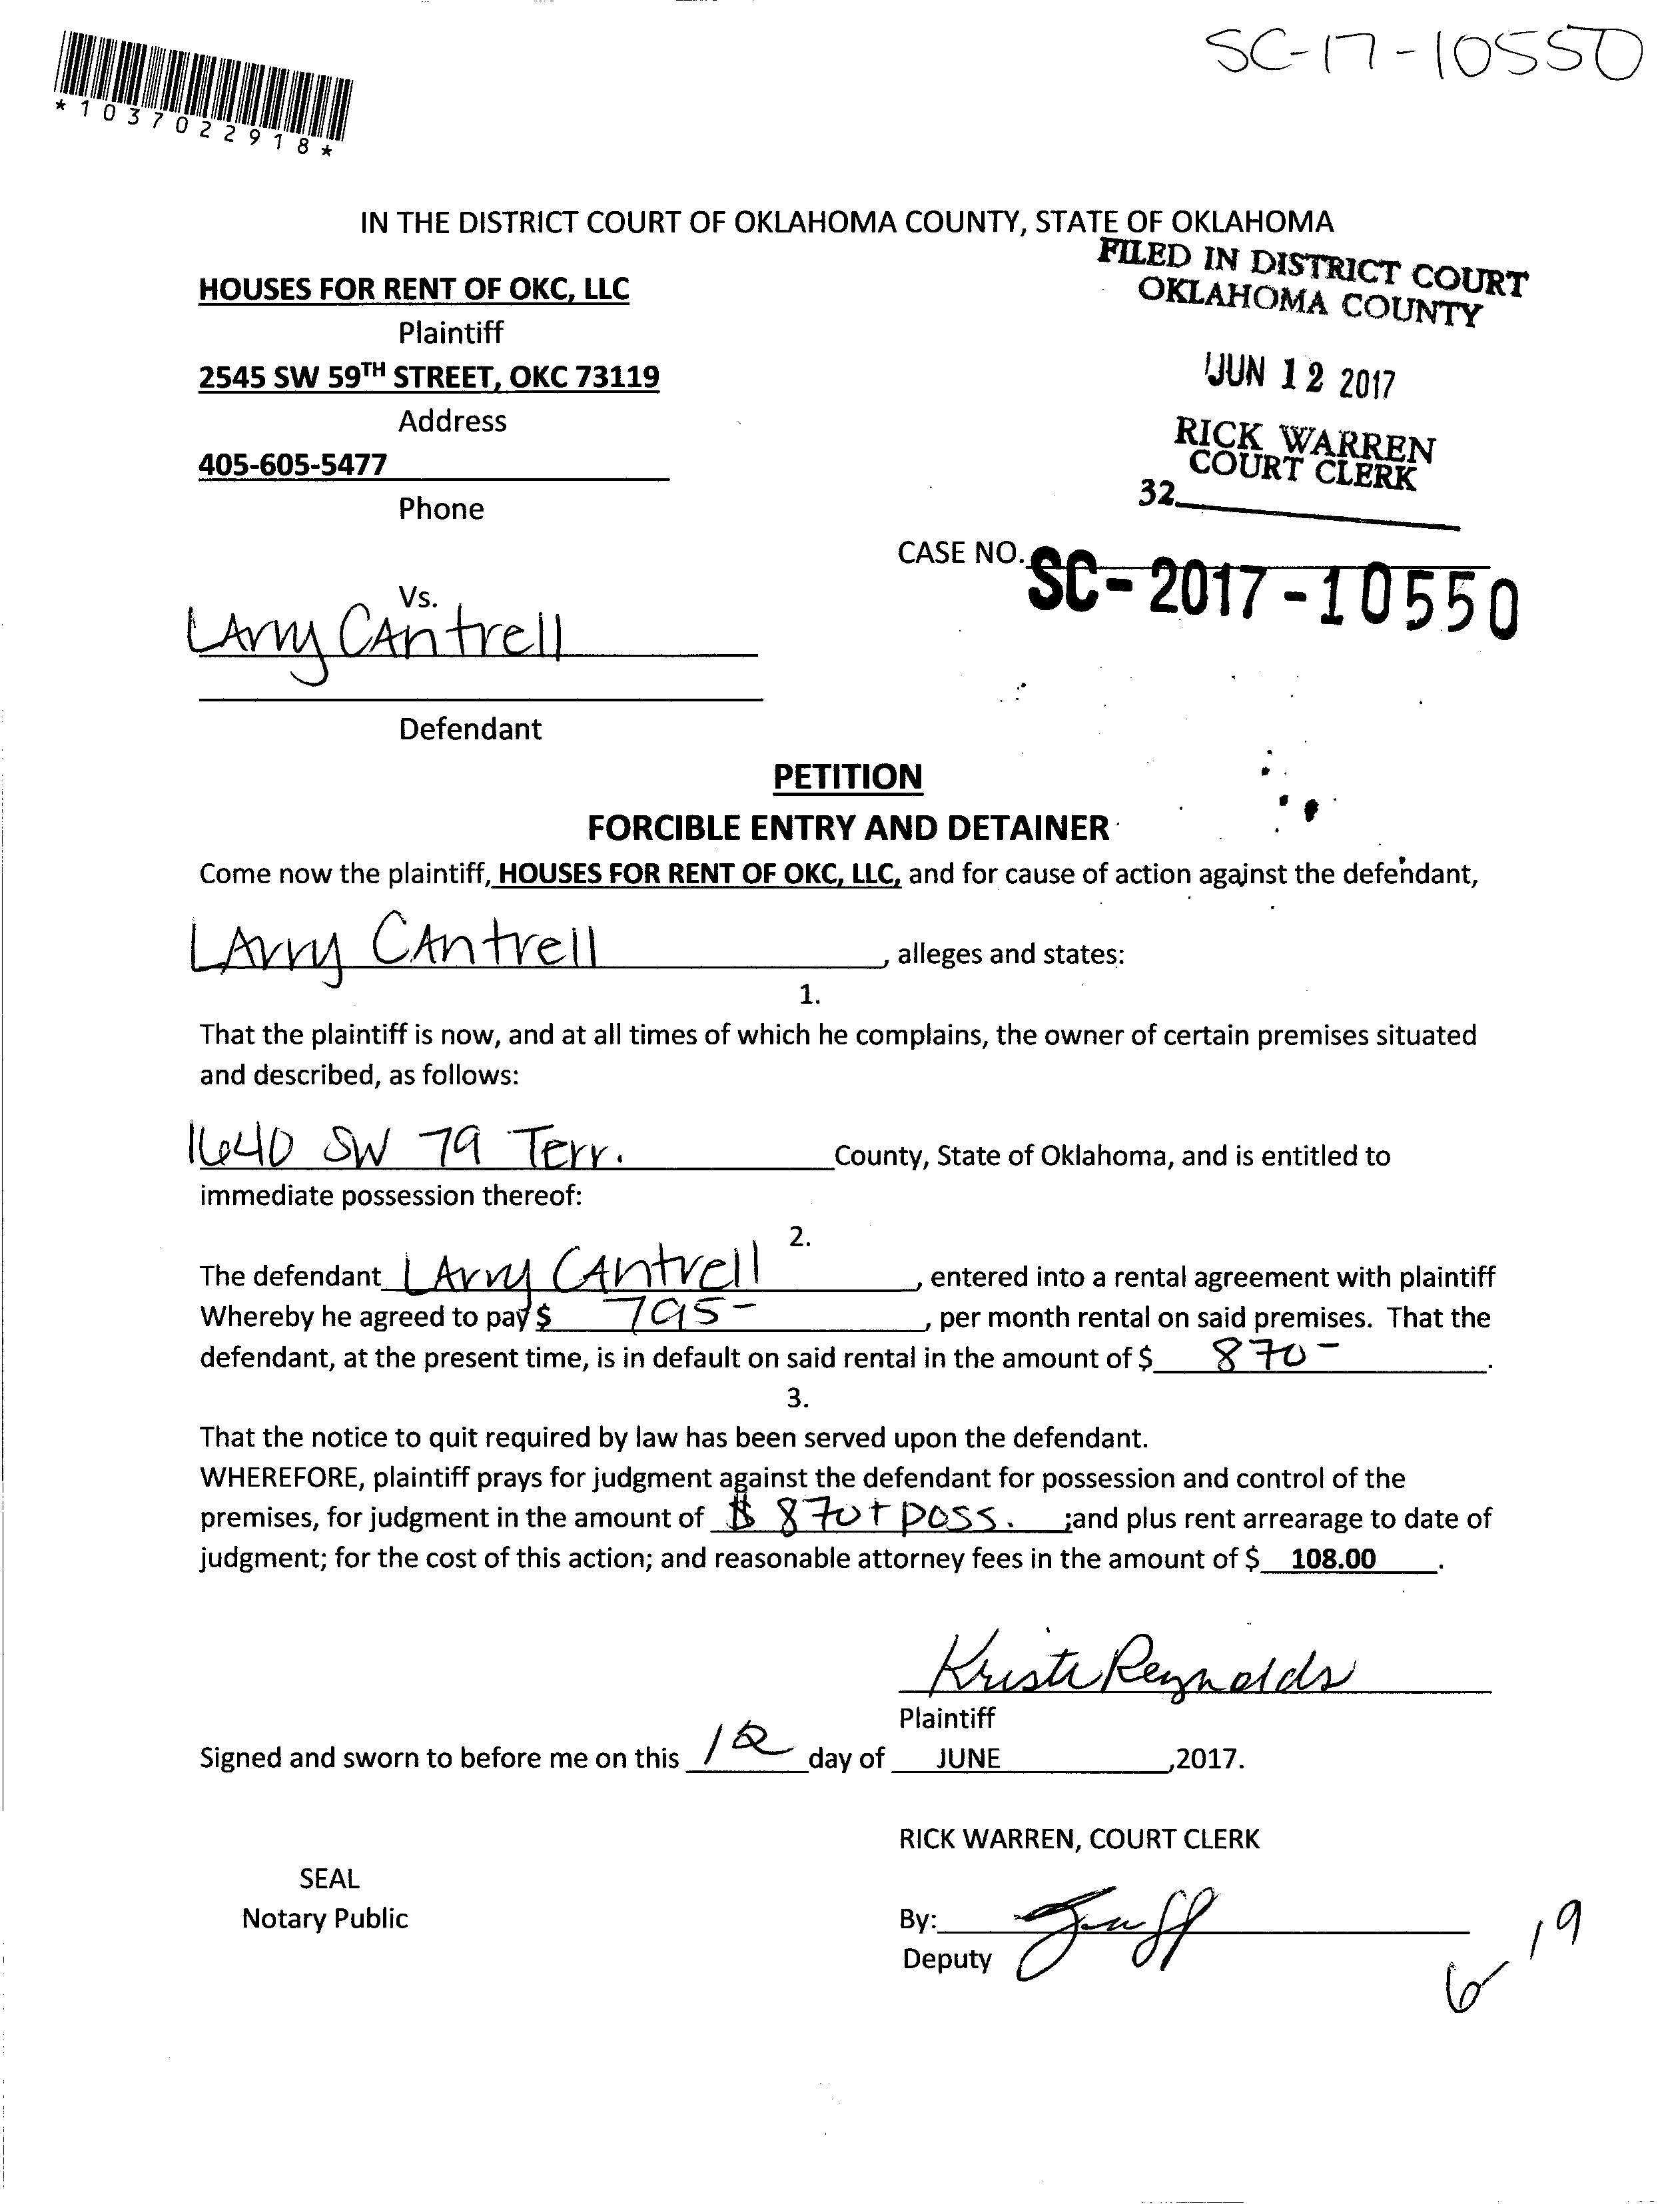 SC-17-10550
*1037022918*
IN THE DISTRICT COURT OF OKLAHOMA COUNTY, STATE OF OKLAHOMA
FILED IN DISTRICT COURT
OKLAHOMA COUNTY
HOUSES FOR RENT OF OKC, LLC
Plaintiff
2545 SW 59TH STREET, OKC 73119
JUN 12 2017
Address
RICK WARREN
COURT CLERK
405-605-5477
32
Phone
CASE NO. SC-2017-10550
Vs.
LArry CAntrell
Defendant
PETITION
FORCIBLE ENTRY AND DETAINER
Come now the plaintiff, HOUSES FOR RENT OF OKC, LLC, and for cause of action against the defendant,
LArry CAntrell, alleges and states:
1.
That the plaintiff is now, and at all times of which he complains, the owner of certain premises situated
and described, as follows:
1640 SW 79 Terr. County, State of Oklahoma, and is entitled to
immediate possession thereof:
2.
The defendant LArry CAntrell, entered into a rental agreement with plaintiff
Whereby he agreed to pay $ 795-, per month rental on said premises. That the
defendant, at the present time, is in default on said rental in the amount of $ 870-.
3.
That the notice to quit required by law has been served upon the defendant.
WHEREFORE, plaintiff prays for judgment against the defendant for possession and control of the
premises, for judgment in the amount of $ 870+ poss. ;and plus rent arrearage to date of
judgment; for the cost of this action; and reasonable attorney fees in the amount of $ 108.00.
Kristi Reynolds
Plaintiff
Signed and sworn to before me on this 12 day of JUNE,2017.
RICK WARREN, COURT CLERK
SEAL
Notary Public
By:
Deputy
6-19